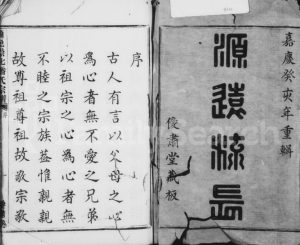 嘉慶癸亥年重輯
源遠流長
肅堂藏板
序
古人有言以父母之心
為心者無不愛之兄弟
以祖宗之心為心者無
不睦之宗族葢惟親親
故尊祖尊祖故敬宗敬